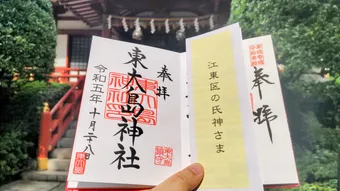 奉拝
東大島神社
令和五年
十月二十八日
江東区の氏神さま
奉拝